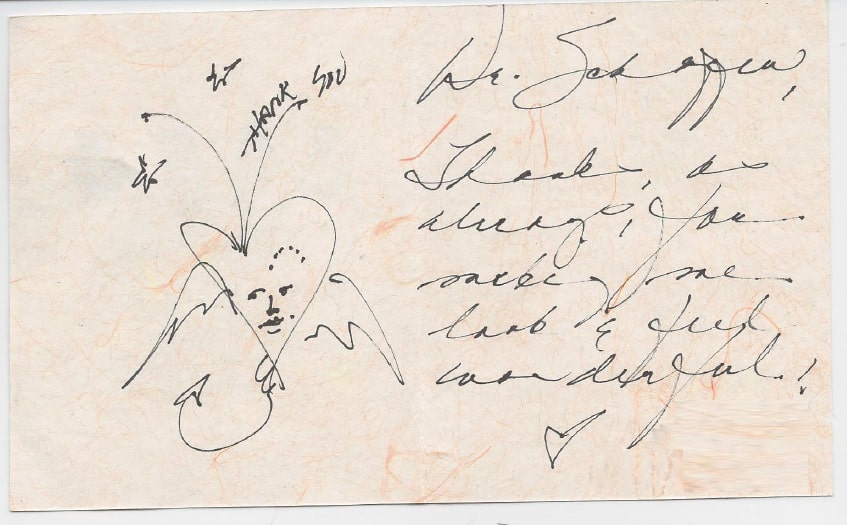 THANK YOU
Dr. Schaffer,
Thanks, as
always, for
making me
look & feel
wonderful!